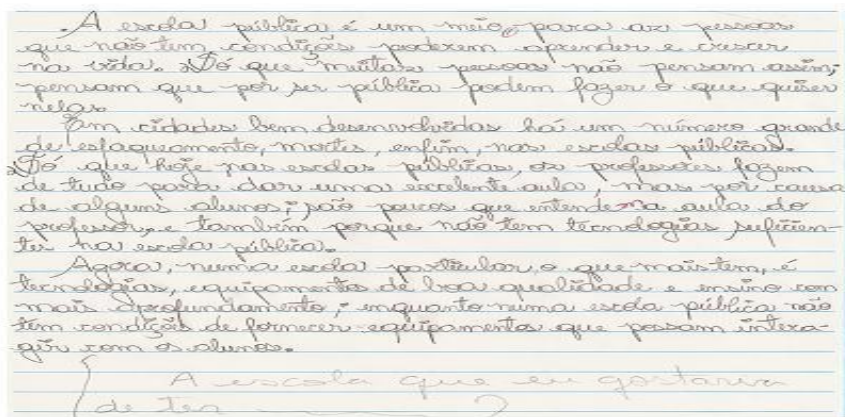 A escola pública é um meio, para as pessoas
que não tem condições poderem aprender e crescer
na vida. Só que muitas pessoas não pensam assim,
pensam que por ser pública podem fazer o que quiser
nelas.
Em cidades bem desenvolvidas há um número grande
de esfaqueamento, mortes, enfim, nas escolas públicas.
Só que hoje nas escolas públicas, os professores fazem
de tudo para dar uma excelente aula, mas por causa
de alguns alunos; são poucos que entendem a aula do
professor, e também porque não tem tecnologias suficien-
tes na escola pública.
Agora, numa escola particular, o que mais tem, é
tecnologias, equipamentos de boa qualidade e ensino com
mais aprofundamento; enquanto numa escola pública não
tem condições de fornecer equipamentos que possam intera-
gir com os alunos.
A escola que eu gostaria
de ter ?